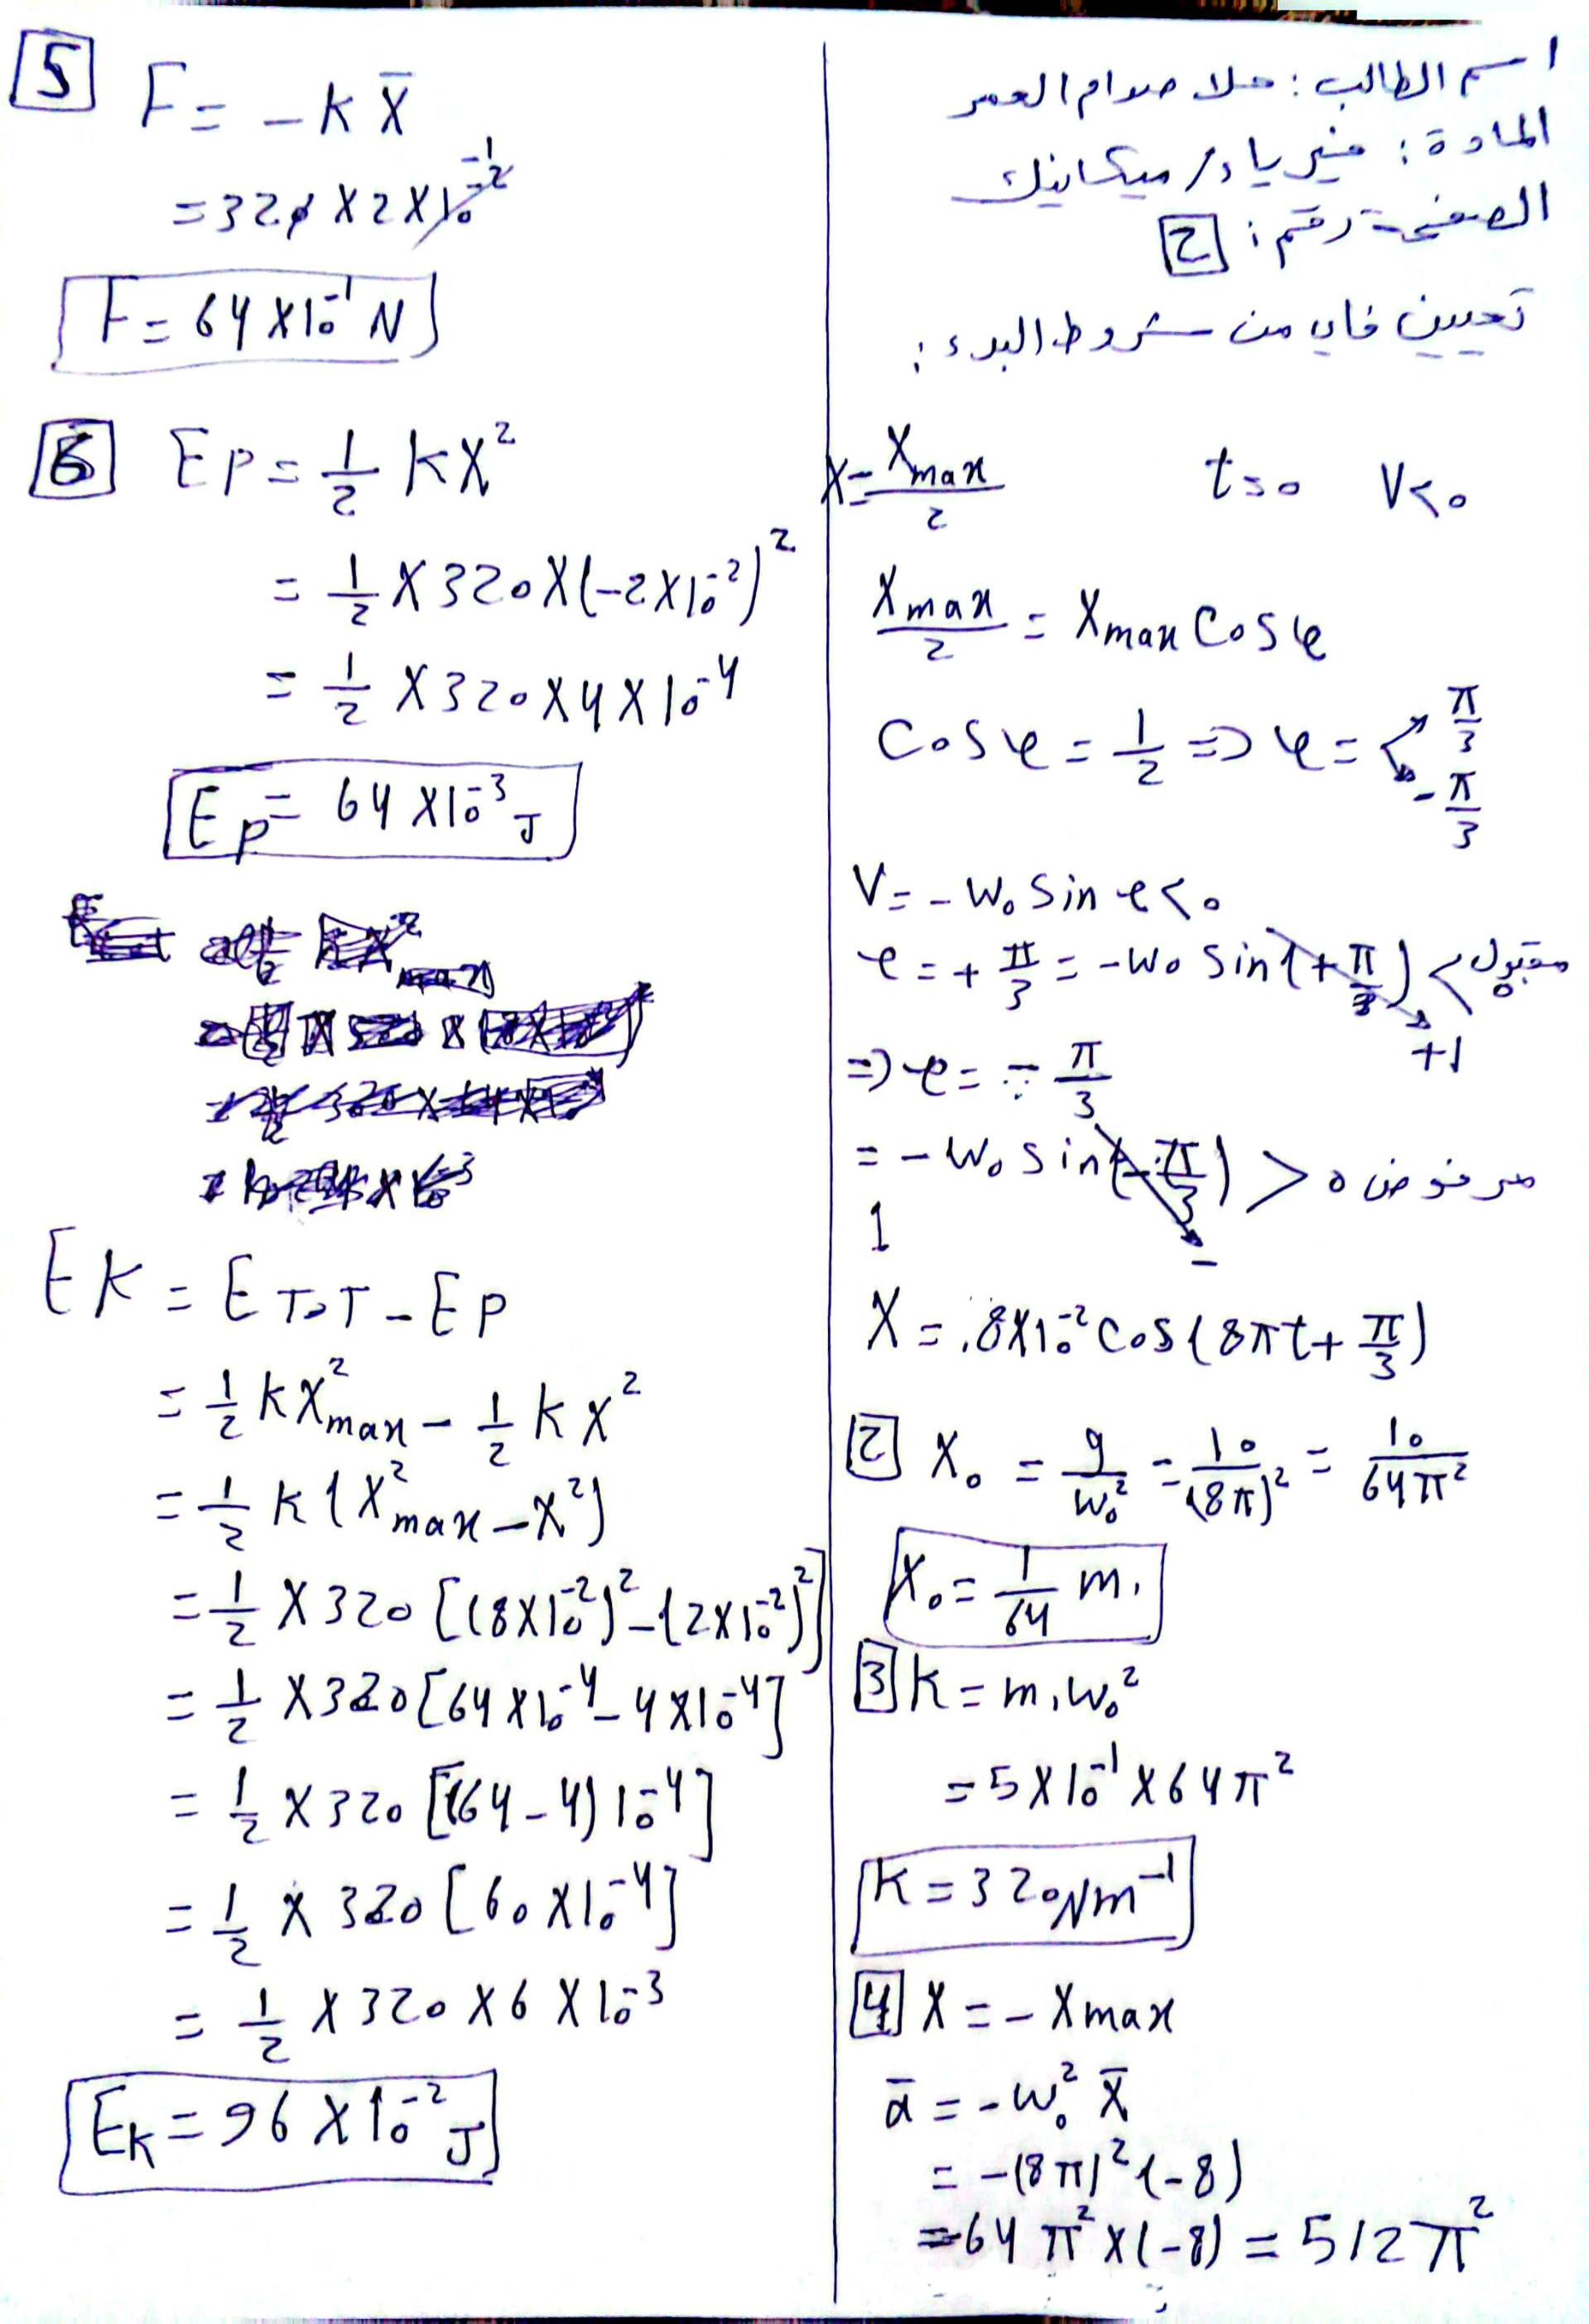 اسم الطالب: حلا صدام العمر
المادة: فيزياء/ ميكانيك
الصفحة رقم: 2
تعيين فاي من شروط البدء:
X = Xmax/2 t=0 V<0
Xmax/2 = Xmax Cosφ
Cosφ = 1/2 => φ = < π/3
-π/3
V = -W₀ Sin φ < 0
φ = + π/3 = -W₀ Sin(+π/3) < 0 مقبول
+1
=> φ = - π/3
= -W₀ Sin(-π/3) > 0 مرفوض
1 -
X = .8X10⁻² Cos(8πt + π/3)
2 X₀ = g/W₀² = 10/(8π)² = 10/64π²
X₀ = 1/64 m.
3 K = m.W₀²
= 5X10⁻¹ X 64π²
K = 320 Nm⁻¹
4 X = - Xmax
ā = -W₀² X̄
= -(8π)²(-8)
= -64π² X(-8) = 512π²
5 F = -K X̄
= 320 X 2 X 10⁻²
F = 64 X10⁻¹ N
6 EP = 1/2 KX²
= 1/2 X 320 X(-2X10⁻²)²
= 1/2 X 320 X 4 X 10⁻⁴
Ep = 64 X10⁻³ J
EK = ETOT - EP
= 1/2 KX²max - 1/2 KX²
= 1/2 K(X²max - X²)
= 1/2 X 320 [(8X10⁻²)² - (2X10⁻²)²]
= 1/2 X 320 [64X10⁻⁴ - 4X10⁻⁴]
= 1/2 X 320 [(64-4)10⁻⁴]
= 1/2 X 320 [60X10⁻⁴]
= 1/2 X 320 X 6 X 10⁻³
EK = 96 X10⁻² J